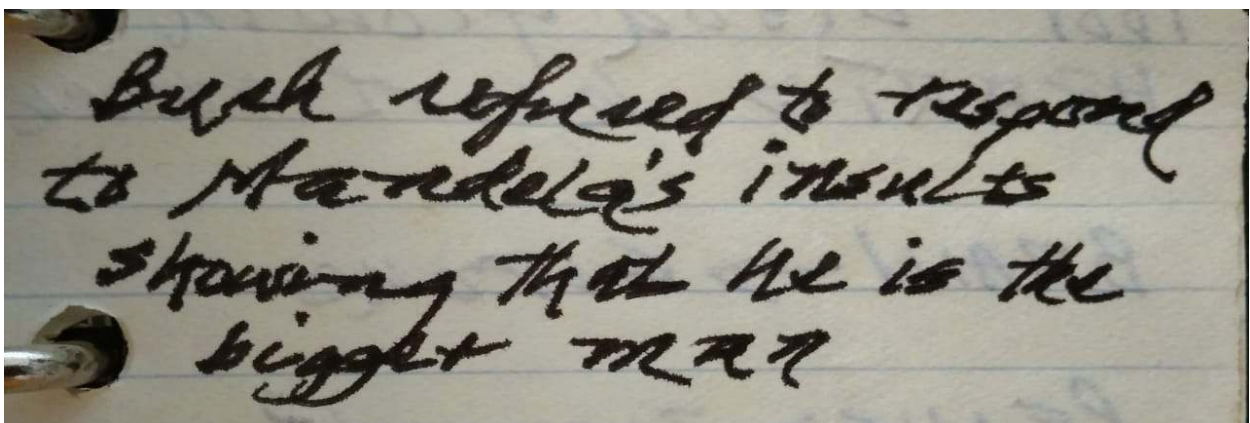 Bush refused to respond
to Mandela's insults
showing that he is the
bigger man